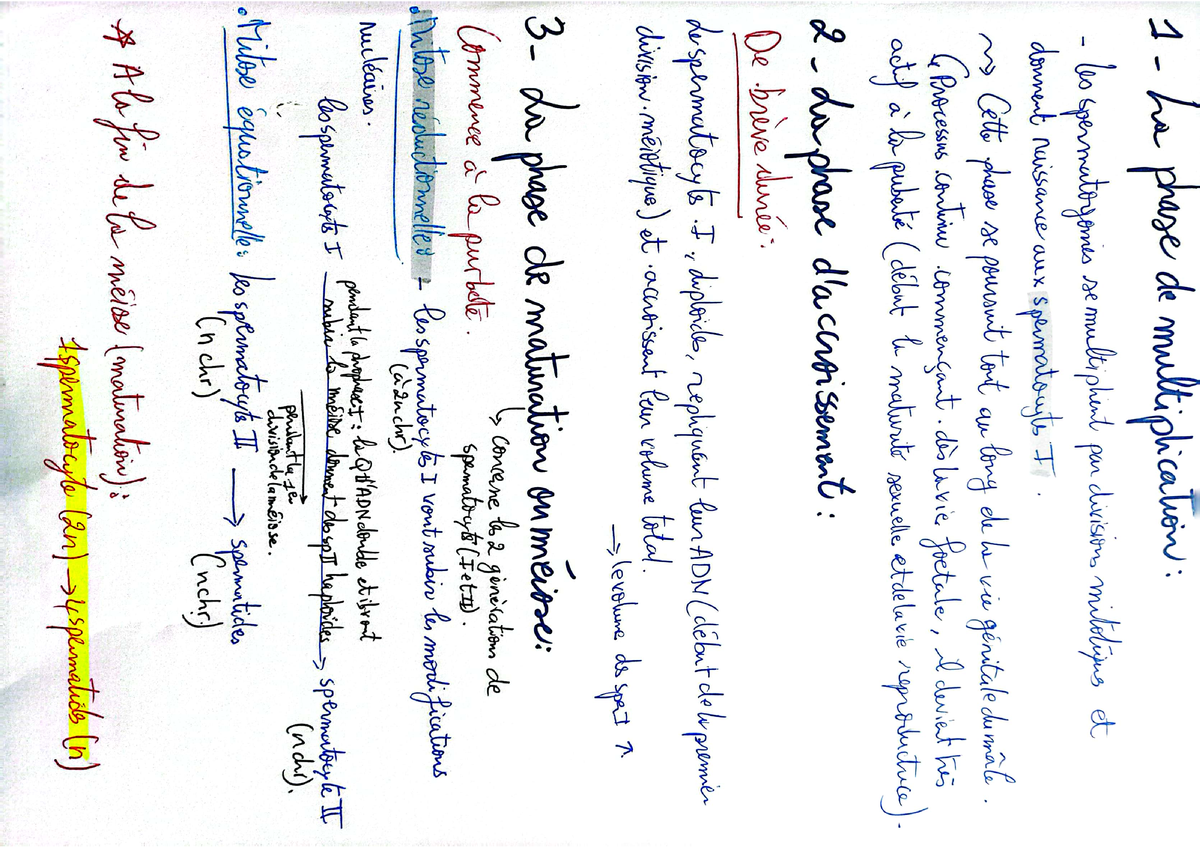 1 - La phase de multiplication :
- les spermatogonies se multiplient par divisions mitotiques et
donnent naissance aux spermatocytes I.
~> Cette phase se poursuit tout au long de la vie génitale du mâle.
↳ Processus continu commençant dès la vie foetale, il devient très
actif à la puberté (début la maturité sexuelle et de la vie reproductrice).
2 - La phase d'accroissement :
De brève durée :
Les spermatocyts I, diploïdes, répliquent leur ADN (début de la premièr
division méiotique) et accroissent leur volume total.
→ le volume des sper I ↗
3 - La phase de maturation ou méiose :
↳ concerne les 2 générations de
spermatocyts (I et II).
Commence à la purbeté.
. Mitose réductionnelle : - les spermatocytes I vont subir les modifications
(à 2n chr)
nucléaires.
pendant la prophase I : la QT d'ADN double et ibvont
les spermatocyts I subir la méiose donnent des sp II haploïdes → spermatocyte II
(n chr).
pendant la 1er
division de la méiose.
. Mitose équationnelle : les spermatocyts II → spermatides
(n chr) (n chr)
* A la fin de la méiose (maturation) :
1 spermatocyte (2n) → 4 spermatids (n)